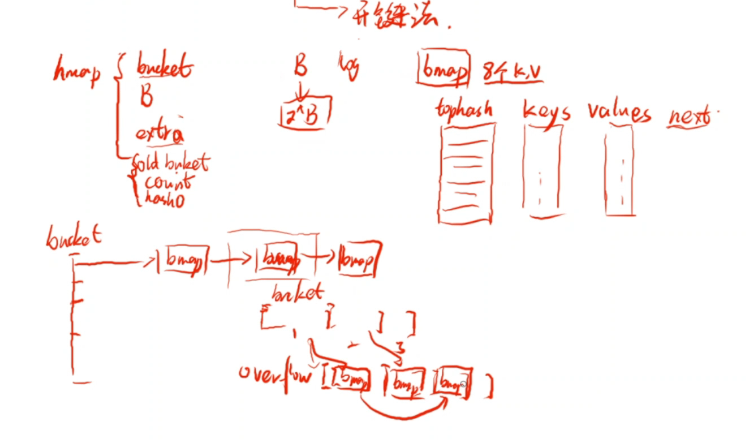 开链法.
hmap { bucket
B
extra
oldbuket
count
hash0
B log
2^B
bmap 8个k,v
tophash keys values next
bucket
bmap bmap bmap
buket
[ [ ] ]
1 - 3
overflow [ [bmap] [bmap] [bmap] ]